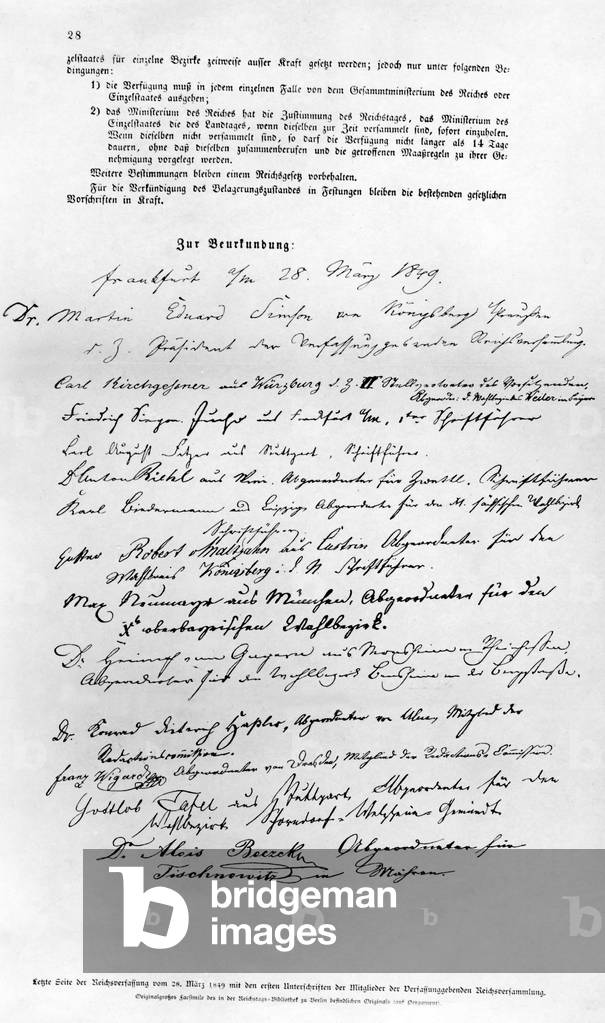 28
zelstaates für einzelne Bezirke zeitweise ausser Kraft gesetzt werden; jedoch nur unter folgenden Be-
dingungen:
1) die Verfügung muß in jedem einzelnen Falle von dem Gesammtministerium des Reiches oder
Einzelstaates ausgehen;
2) das Ministerium des Reiches hat die Zustimmung des Reichstages, das Ministerium des
Einzelstaates die des Landtages, wenn dieselben zur Zeit versammelt sind, sofort einzuholen.
Wenn dieselben nicht versammelt sind, so darf die Verfügung nicht länger als 14 Tage
dauern, ohne daß dieselben zusammenberufen und die getroffenen Maaßregeln zu ihrer Ge-
nehmigung vorgelegt werden.
Weitere Bestimmungen bleiben einem Reichsgesetz vorbehalten.
Für die Verkündigung des Belagerungszustandes in Festungen bleiben die bestehenden gesetzlichen
Vorschriften in Kraft.
Zur Beurkundung:
Frankfurt a/m 28. März 1849.
Dr. Martin Eduard Simson von Königsberg Preußen
d. Z. Präsident der verfassunggebenden Reichsversammlung.
Carl Kirchgessner aus Würzburg d. Z. II Stellvertreter des Vorsitzenden,
Abgeord: d. Wahlbezirkes Weiler in
Friedrich Fuchs aus Schriftführer
Carl August Fetzer aus Stuttgart, Schriftführer.
Dr Anton Riehl aus Wien. Abgeordneter für Zwettl. Schriftführer
Karl Biedermann aus Leipzig Abgeordneter für den sächsischen Wahlbezirk
Schriftführer
Gustav Robert Maltzahn aus Cüstrin Abgeordneter für den
Wahlkreis Königsberg i. d. N Schriftführer.
Max Neumayr aus München, Abgeordneter für den
X oberbayrischen Wahlbezirk.
Dr Heinrich von Gagern aus Monsheim in Rheinhessen,
Abgeordneter für den Wahlbezirk Bensheim an der Bergstraße.
Dr. Konrad Dieterich Haßler, Abgeordneter von Ulm, Mitglied der
Redactionscommission.
Franz Wigard Abgeordneter von Dresden, Mitglied der Redactions-Commission.
Gottlob Tafel aus Stuttgart Abgeordneter für den
Wahlbezirk Schorndorf-Welzheim-Gmünd
Dr. Alois Boczek Abgeordneter für
Tischnowitz in Mähren.
bridgeman
images
Letzte Seite der Reichsverfassung vom 28. März 1849 mit den ersten Unterschriften der Mitglieder der Verfassunggebenden Reichsversammlung.
Originalgroßes Facsimile des in der Reichstags-Bibliothek zu Berlin befindlichen Originals auf Pergament.